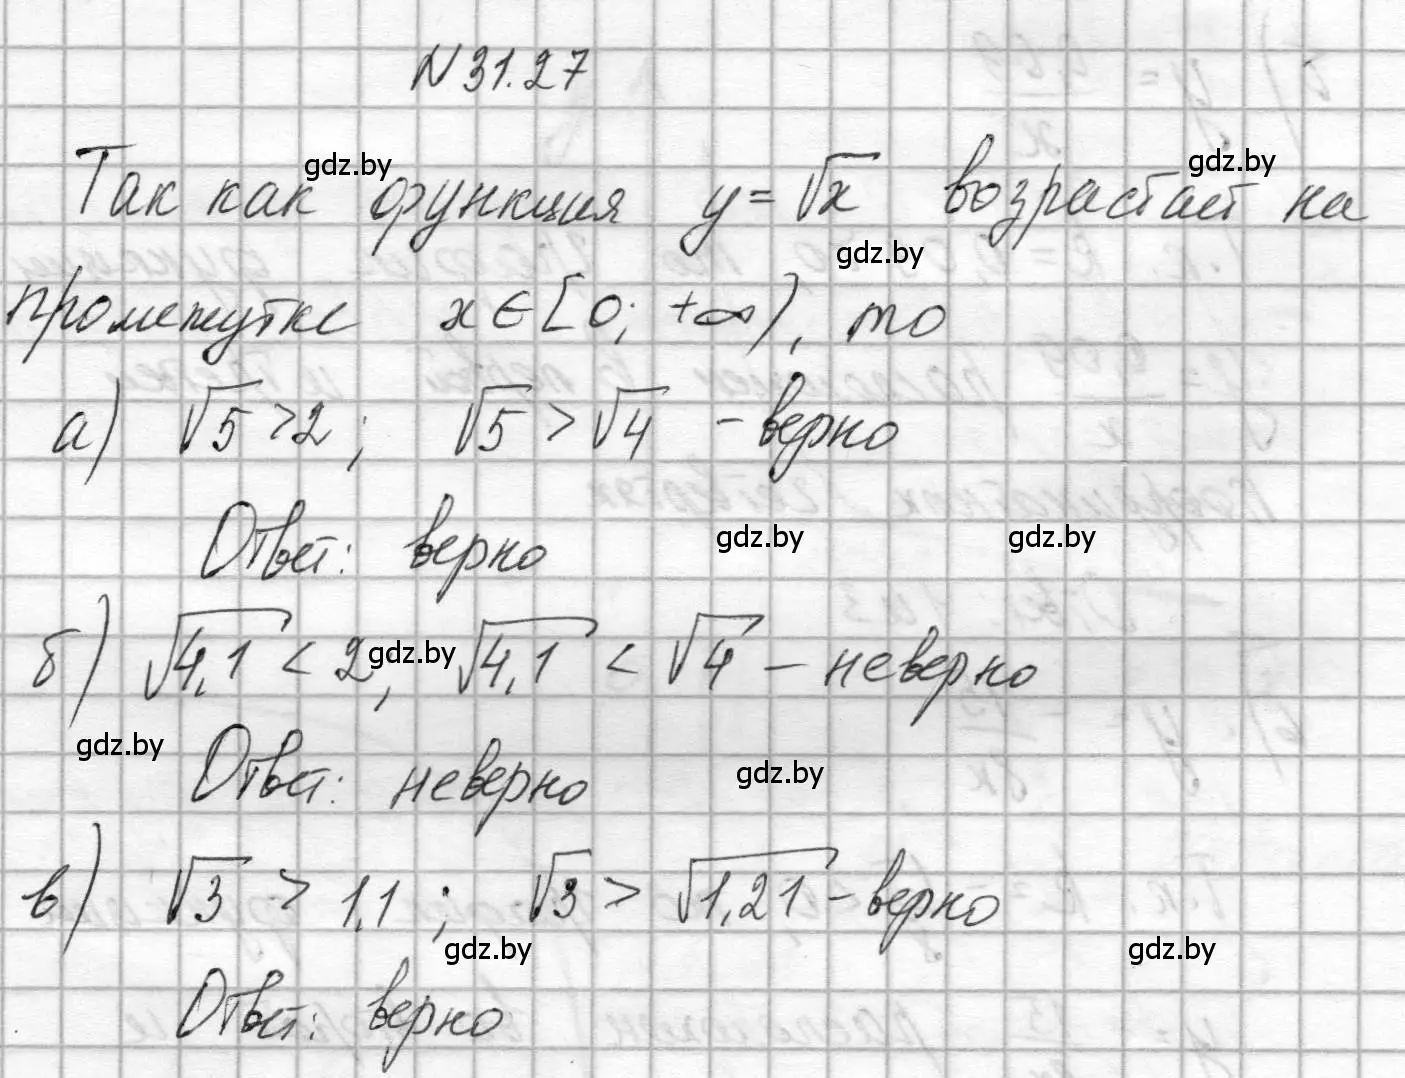 N 31.27
Так как функция y = √x возрастает на
промежутке x ∈ [0; +∞), то
а) √5 > 2; √5 > √4 – верно
Ответ: верно
б) √4,1 < 2, √4,1 < √4 – неверно
Ответ: неверно
в) √3 > 1,1; √3 > √1,21 – верно
Ответ: верно
gdz.by
gdz.by
gdz.by
gdz.by
gdz.by
gdz.by
gdz.by
gdz.by
gdz.by
gdz.by